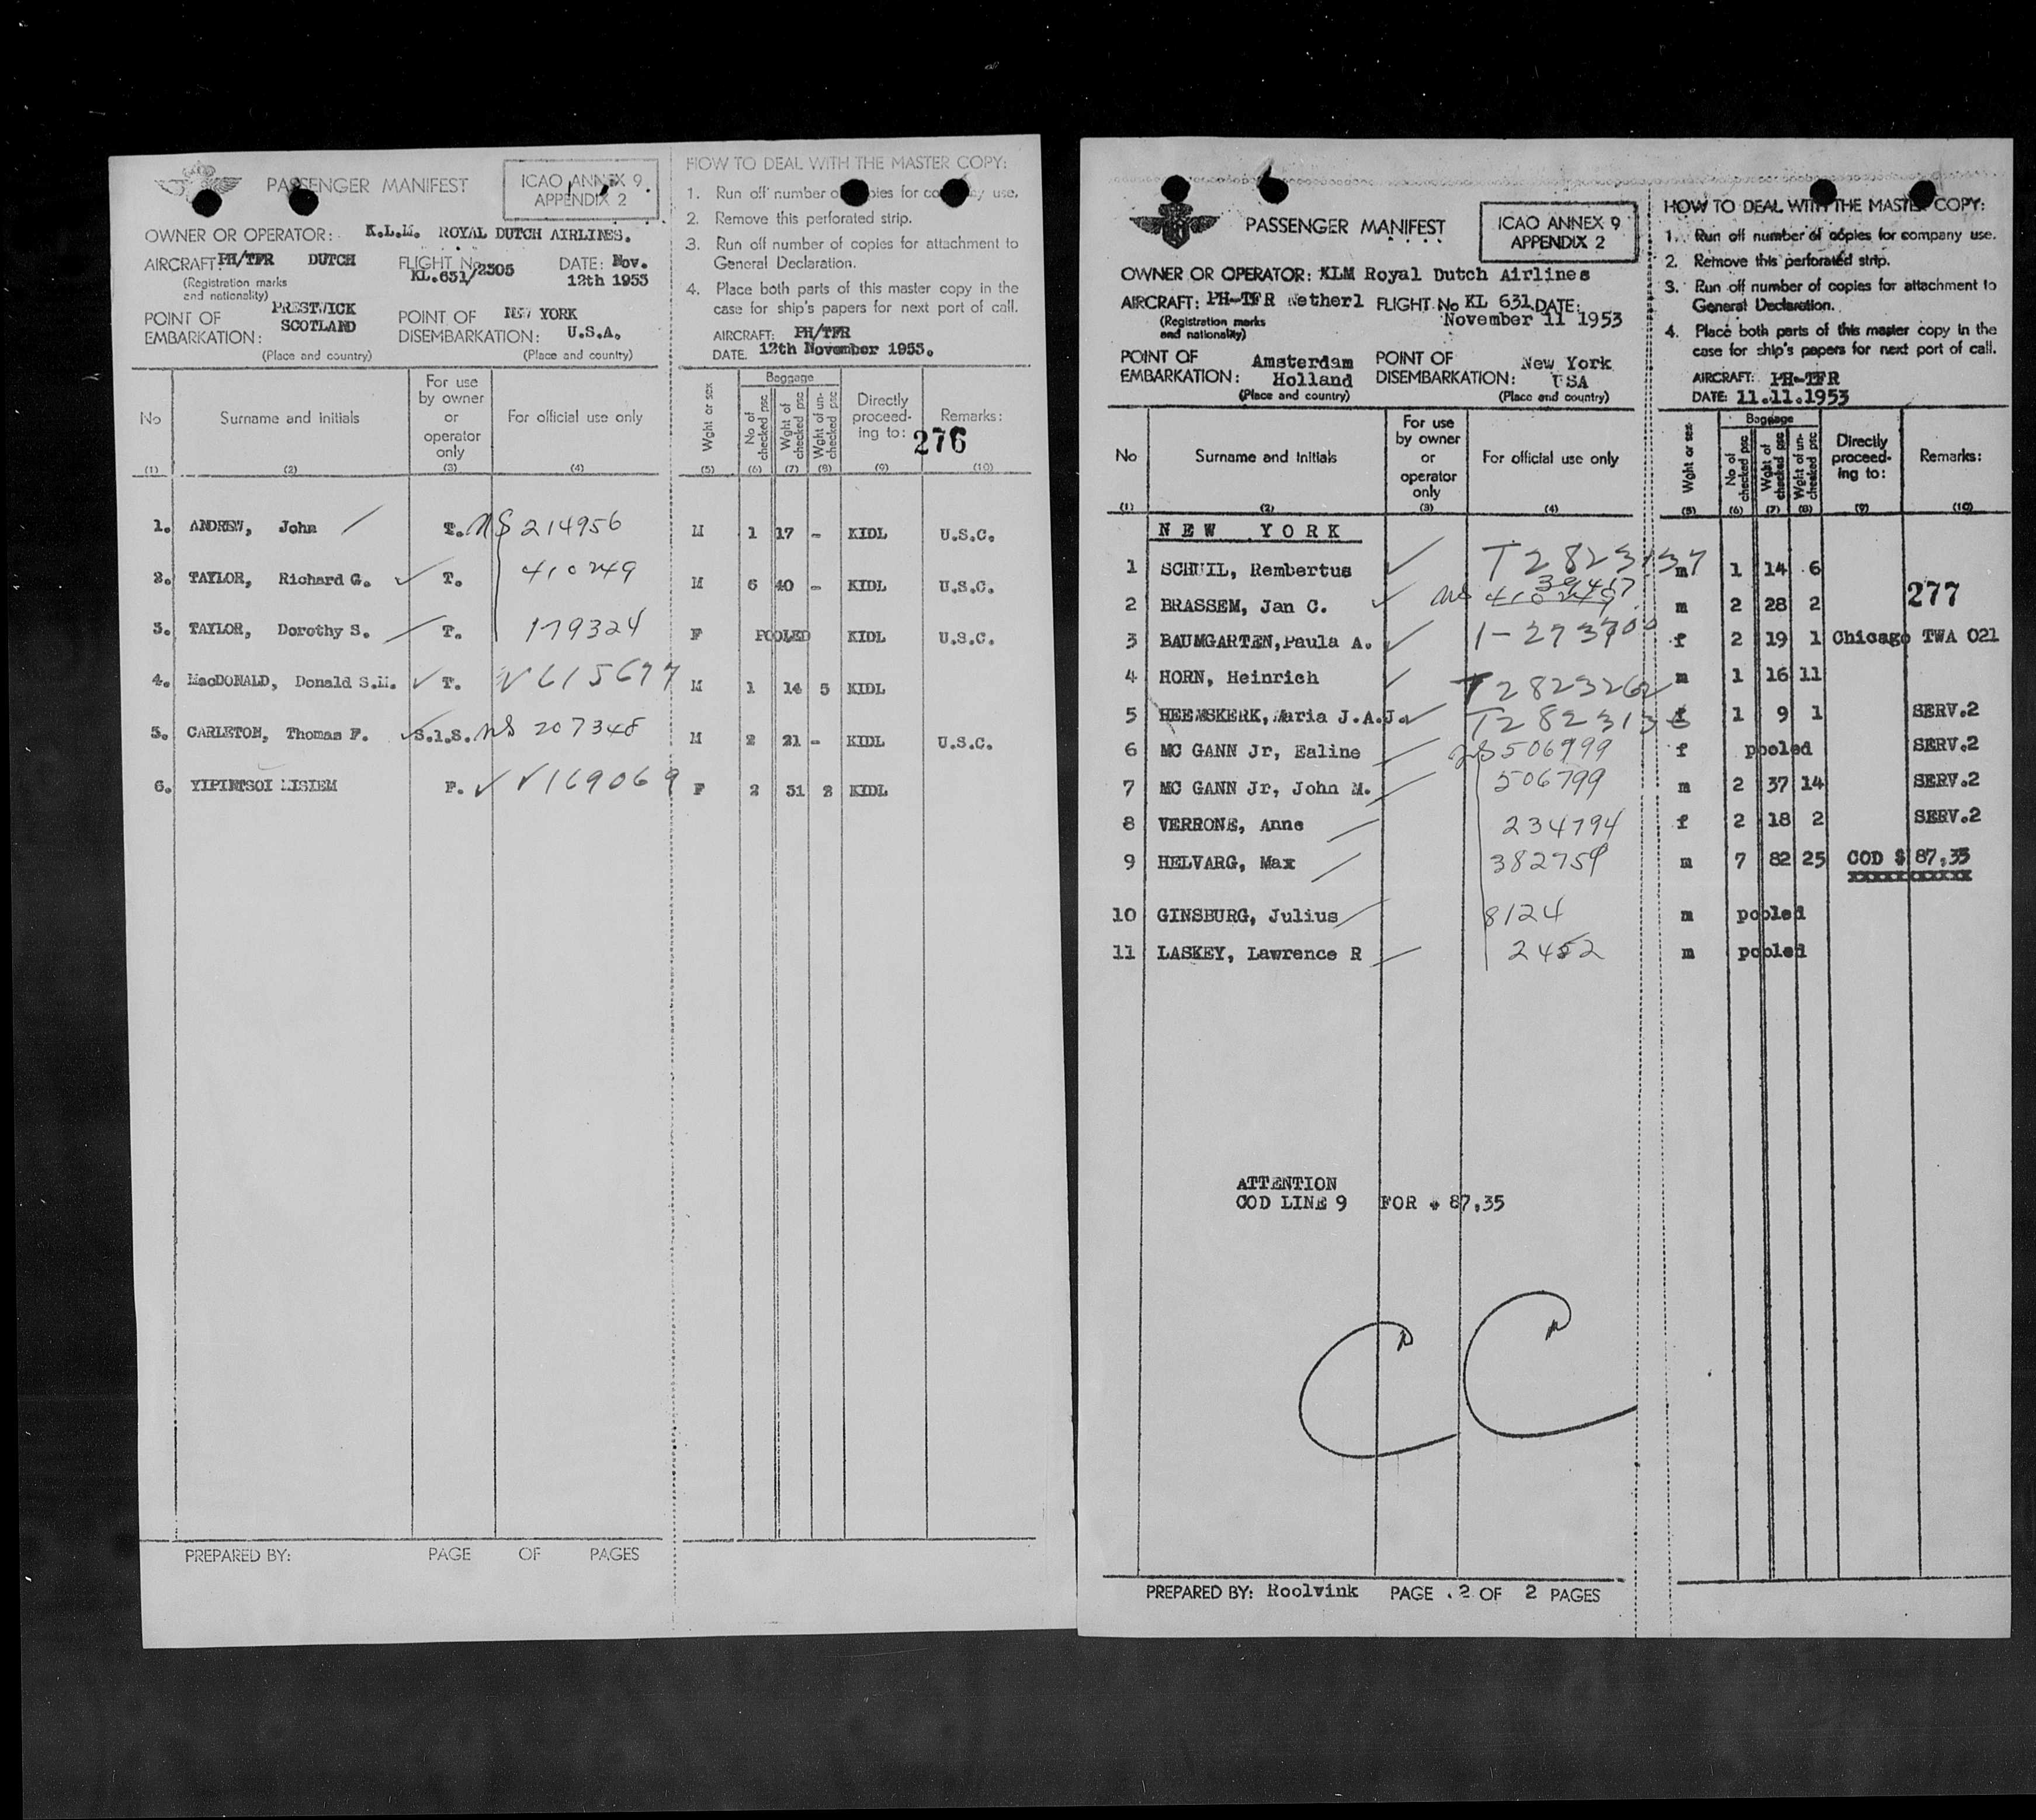 PASSENGER MANIFEST
ICAO ANNEX 9
APPENDIX 2
OWNER OR OPERATOR: K.L.M. ROYAL DUTCH AIRLINES.
AIRCRAFT: PH/TFR DUTCH FLIGHT No KL.631/2305 DATE: Nov. 12th 1953
(Registration marks
and nationality)
POINT OF EMBARKATION: PRESTWICK SCOTLAND POINT OF DISEMBARKATION: NEW YORK U.S.A.
(Place and country) (Place and country)
HOW TO DEAL WITH THE MASTER COPY:
1. Run off number of copies for company use.
2. Remove this perforated strip.
3. Run off number of copies for attachment to
General Declaration.
4. Place both parts of this master copy in the
case for ship's papers for next port of call.
AIRCRAFT: PH/TFR
DATE. 12th November 1953.
No Surname and Initials For use by owner or operator only For official use only Wght or sex Baggage No of checked psc Wght of checked psc Wght of un-checked psc Directly proceed-ing to: Remarks:
276
(1) (2) (3) (4) (5) (6) (7) (8) (9) (10)
1. ANDREW, John T. NS 214956 M 1 17 - KIDL U.S.C.
2. TAYLOR, Richard G. T. 410249 M 6 40 - KIDL U.S.C.
3. TAYLOR, Dorothy S. T. 179324 F POOLED KIDL U.S.C.
4. MacDONALD, Donald S.M. T. V615677 M 1 14 5 KIDL
5. CARLETON, Thomas F. S.l.S. NS 207348 M 2 21 - KIDL U.S.C.
6. YIPINTSOI LISIEM F. V169069 F 2 31 2 KIDL
PREPARED BY: PAGE OF PAGES
PASSENGER MANIFEST
ICAO ANNEX 9
APPENDIX 2
OWNER OR OPERATOR: KLM Royal Dutch Airlines
AIRCRAFT: PH-TFR Netherl FLIGHT No KL 631 DATE: November 11 1953
(Registration marks
and nationality)
POINT OF EMBARKATION: Amsterdam Holland POINT OF DISEMBARKATION: New York USA
(Place and country) (Place and country)
HOW TO DEAL WITH THE MASTER COPY:
1. Run off number of copies for company use.
2. Remove this perforated strip.
3. Run off number of copies for attachment to
General Declaration.
4. Place both parts of this master copy in the
case for ship's papers for next port of call.
AIRCRAFT: PH-TFR
DATE: 11.11.1953
No Surname and Initials For use by owner or operator only For official use only Wght or sex Baggage No of checked psc Wght of checked psc Wght of un-checked psc Directly proceed-ing to: Remarks:
(1) (2) (3) (4) (5) (6) (7) (8) (9) (10)
NEW YORK
1 SCHUIL, Rembertus T2823137 m 1 14 6
277
2 BRASSEM, Jan C. NS 410249 39467 m 2 28 2
3 BAUMGARTEN, Paula A. 1-273700 f 2 19 1 Chicago TWA 021
4 HORN, Heinrich T2823262 m 1 16 11
5 HEEMSKERK, Maria J.A.J. f 1 9 1 SERV.2
6 MC GANN Jr, Ealine 506799 f pooled SERV.2
7 MC GANN Jr, John M. 506799 m 2 37 14 SERV.2
8 VERRONE, Anne 234794 f 2 18 2 SERV.2
9 HELVARG, Max 382759 m 7 82 25 COD $ 87,35
xxxxxxxxxxx
10 GINSBURG, Julius 8124 m pooled
11 LASKEY, Lawrence R 2452 m pooled
ATTENTION
COD LINE 9 FOR $ 87,35
CC
PREPARED BY: Roolvink PAGE .2 OF 2 PAGES